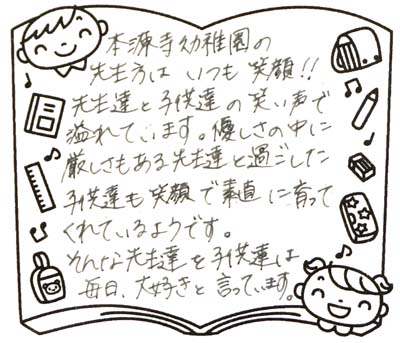 本源寺幼稚園の
先生方は いつも 笑顔!!
先生達と子供達の笑い声で
溢れています。優しさの中に
厳しさもある先生達と過ごした
子供達も笑顔で素直に育って
くれているようです。
そんな先生達を子供達は
毎日、大好きと言っています。